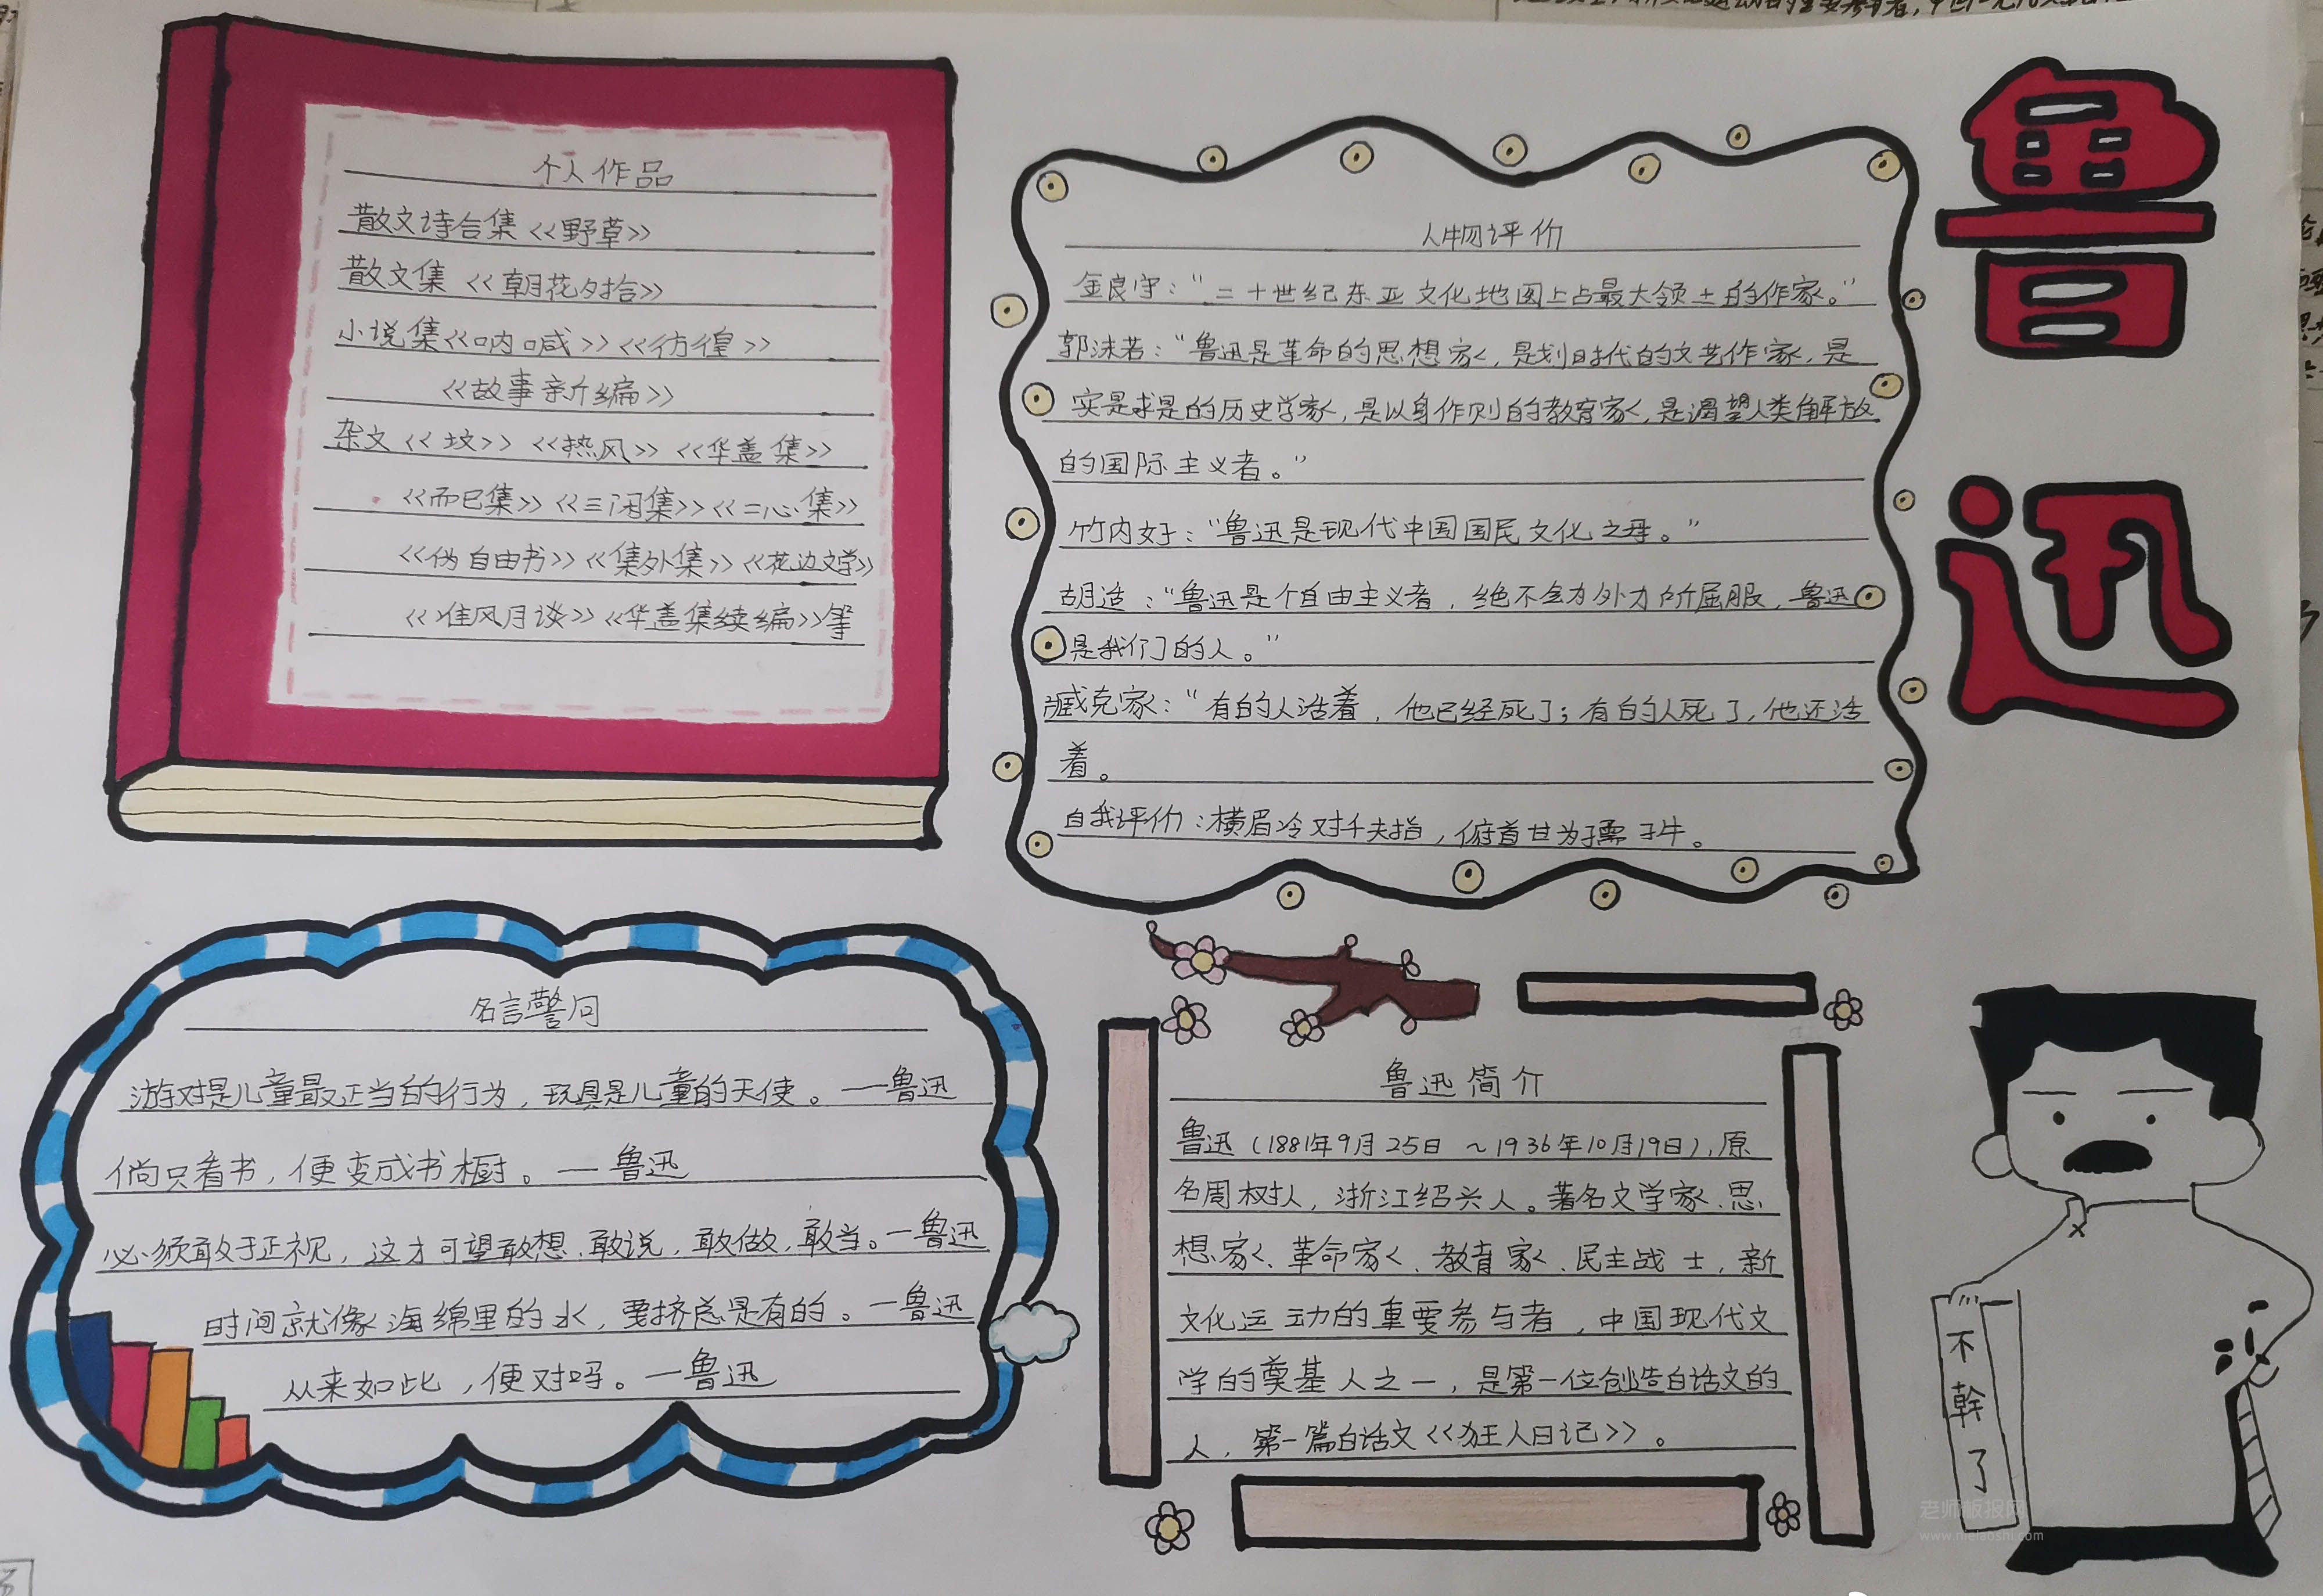 鲁迅
个人作品
散文诗合集《野草》
散文集《朝花夕拾》
小说集《呐喊》《彷徨》
《故事新编》
杂文《坟》《热风》《华盖集》
《而已集》《三闲集》《二心集》
《伪自由书》《集外集》《花边文学》
《准风月谈》《华盖集续编》等
人物评价
金良守:“二十世纪东亚文化地图上占最大领土的作家。”
郭沫若:“鲁迅是革命的思想家,是划时代的文艺作家,是
实是求是的历史学家,是以身作则的教育家,是渴望人类解放
的国际主义者。”
竹内好:“鲁迅是现代中国国民文化之母。”
胡适:“鲁迅是个自由主义者,绝不会为外力所屈服,鲁迅
是我们的人。”
臧克家:“有的人活着,他已经死了;有的人死了,他还活
着。
自我评价:横眉冷对千夫指,俯首甘为孺子牛。
名言警问
游对是儿童最正当的行为,玩具是儿童的天使。—鲁迅
倘只看书,便变成书橱。—鲁迅
必须敢于正视,这才可望敢想、敢说,敢做,敢当。—鲁迅
时间就像海绵里的水,要挤总是有的。—鲁迅
从来如此,便对吗。—鲁迅
鲁迅简介
鲁迅(1881年9月25日~1936年10月19日),原
名周树人,浙江绍兴人。著名文学家、思
想家、革命家、教育家、民主战士,新
文化运动的重要参与者,中国现代文
学的奠基人之一,是第一位创造白话文的
人,第一篇白话文《狂人日记》。
不幹了
老师板报网